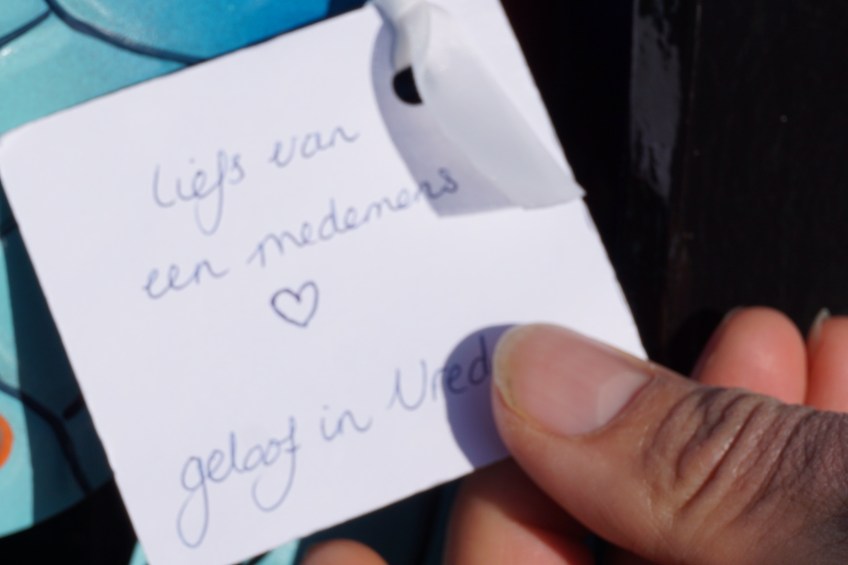 liefs van
een medemens
♡
geloof in Vred